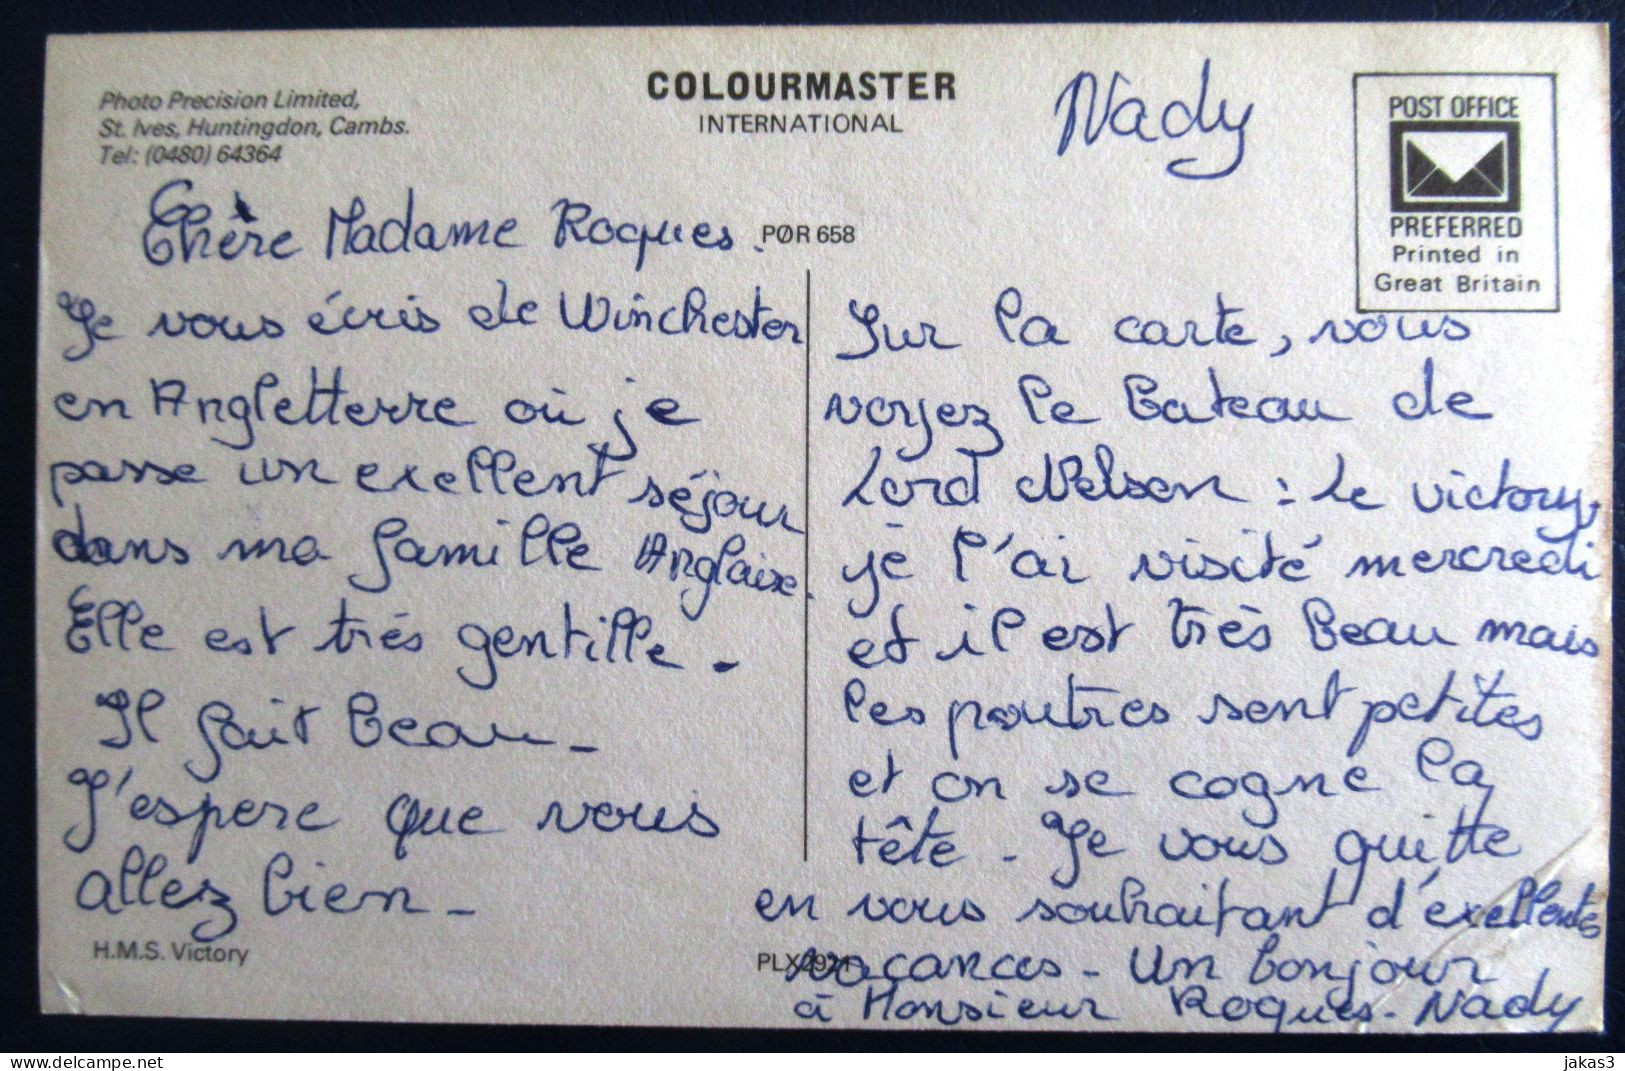 Photo Precision Limited,
St. Ives, Huntingdon, Cambs.
Tel: (0480) 64364
COLOURMASTER
INTERNATIONAL
Nady
POST OFFICE
PREFERRED
Printed in
Great Britain
Chère Madame Roques.
PØR 658
Je vous écris de Winchester
en Angletterre où je
passe un exellent séjour
dans ma famille Anglaise.
Elle est très gentille -
Il fait beau -
J'espere que vous
allez bien -
H.M.S. Victory
Sur la carte, vous
voyez le bateau de
Lord Nelson : Le victory,
je l'ai visité mercredi
et il est très beau mais
les poutres sont petites
et on se cogne la
tête - Je vous quitte
en vous souhaitant d'éxellentes
vacances - Un bonjour
à Monsieur Roques - Nady
jakas3